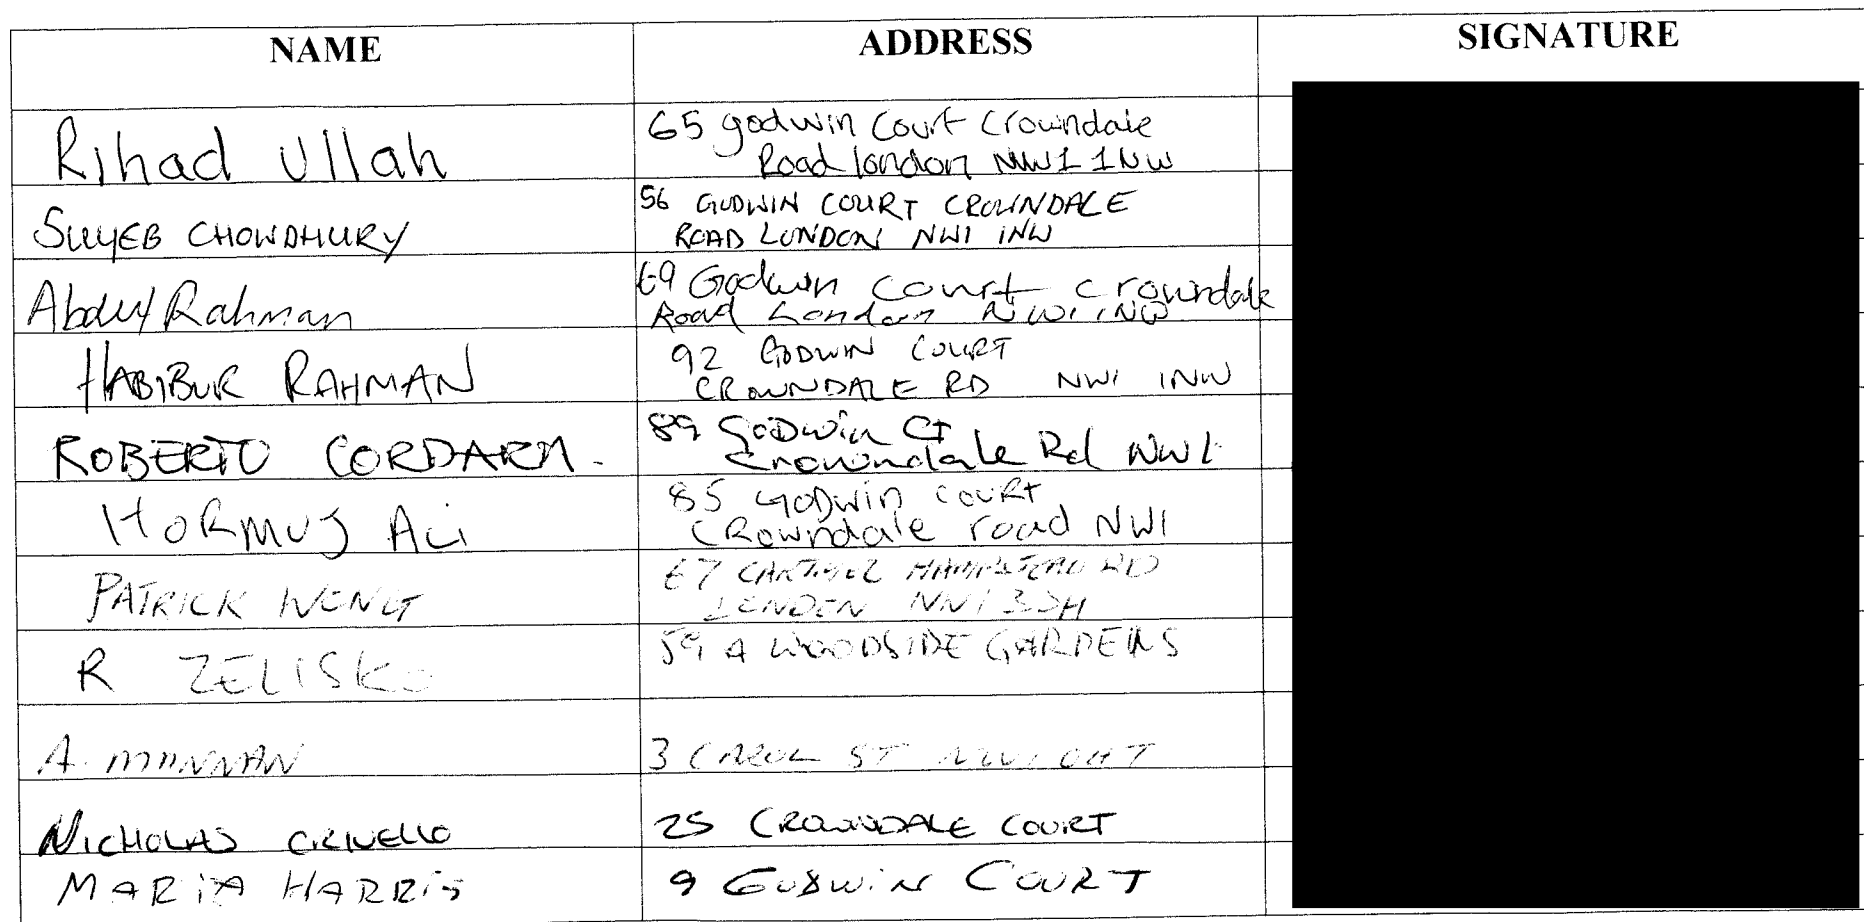 NAME ADDRESS SIGNATURE
Rihad Ullah
65 godwin Court Crowndale
Road london NW1 1NW
SUYEB CHOWDHURY
56 GODWIN COURT CROWNDALE
ROAD LONDON NW1 1NW
Abdul Rahman
69 Godwin court crowndale
Road London NW1 1NW
HABIBUR RAHMAN
92 GODWIN COURT
CROWNDALE RD NW1 1NW
ROBERTO
89 GODWin CT
Crowndale Rd NW1
HORMUJ ALi
85 GODwin COURT
CRowndale road NW1
PATRICK WONG
67 HAMPSTEAD RD
LONDON NW1
R ZELISKO
59 A WOODSIDE GARDENS
A. MANNAN
3 CAROL ST NW1 0HT
NICHOLAS CRIVELLO
25 CROWNDALE COURT
MARIA HARRIS
9 GODWIN COURT